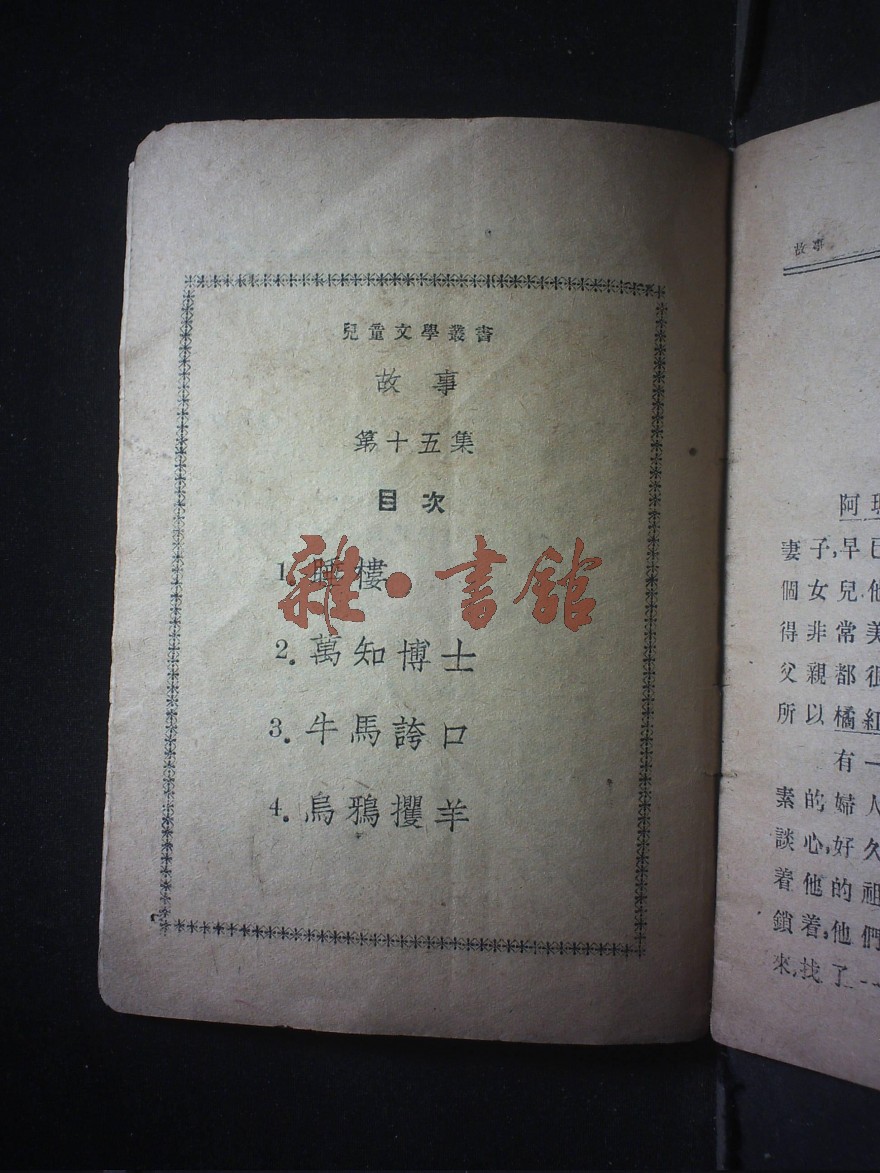 兒童文學叢書
故事
第十五集
目次
1.睡樓
2.萬知博士
3.牛馬誇口
4.烏鴉攫羊
雜·書館
阿
妻子,早已
個女兒.他
得非常美
父親都很
所以橘紅
有一
素的婦人
談心,好久
着他的祖
鎖着,他們
來,找了一